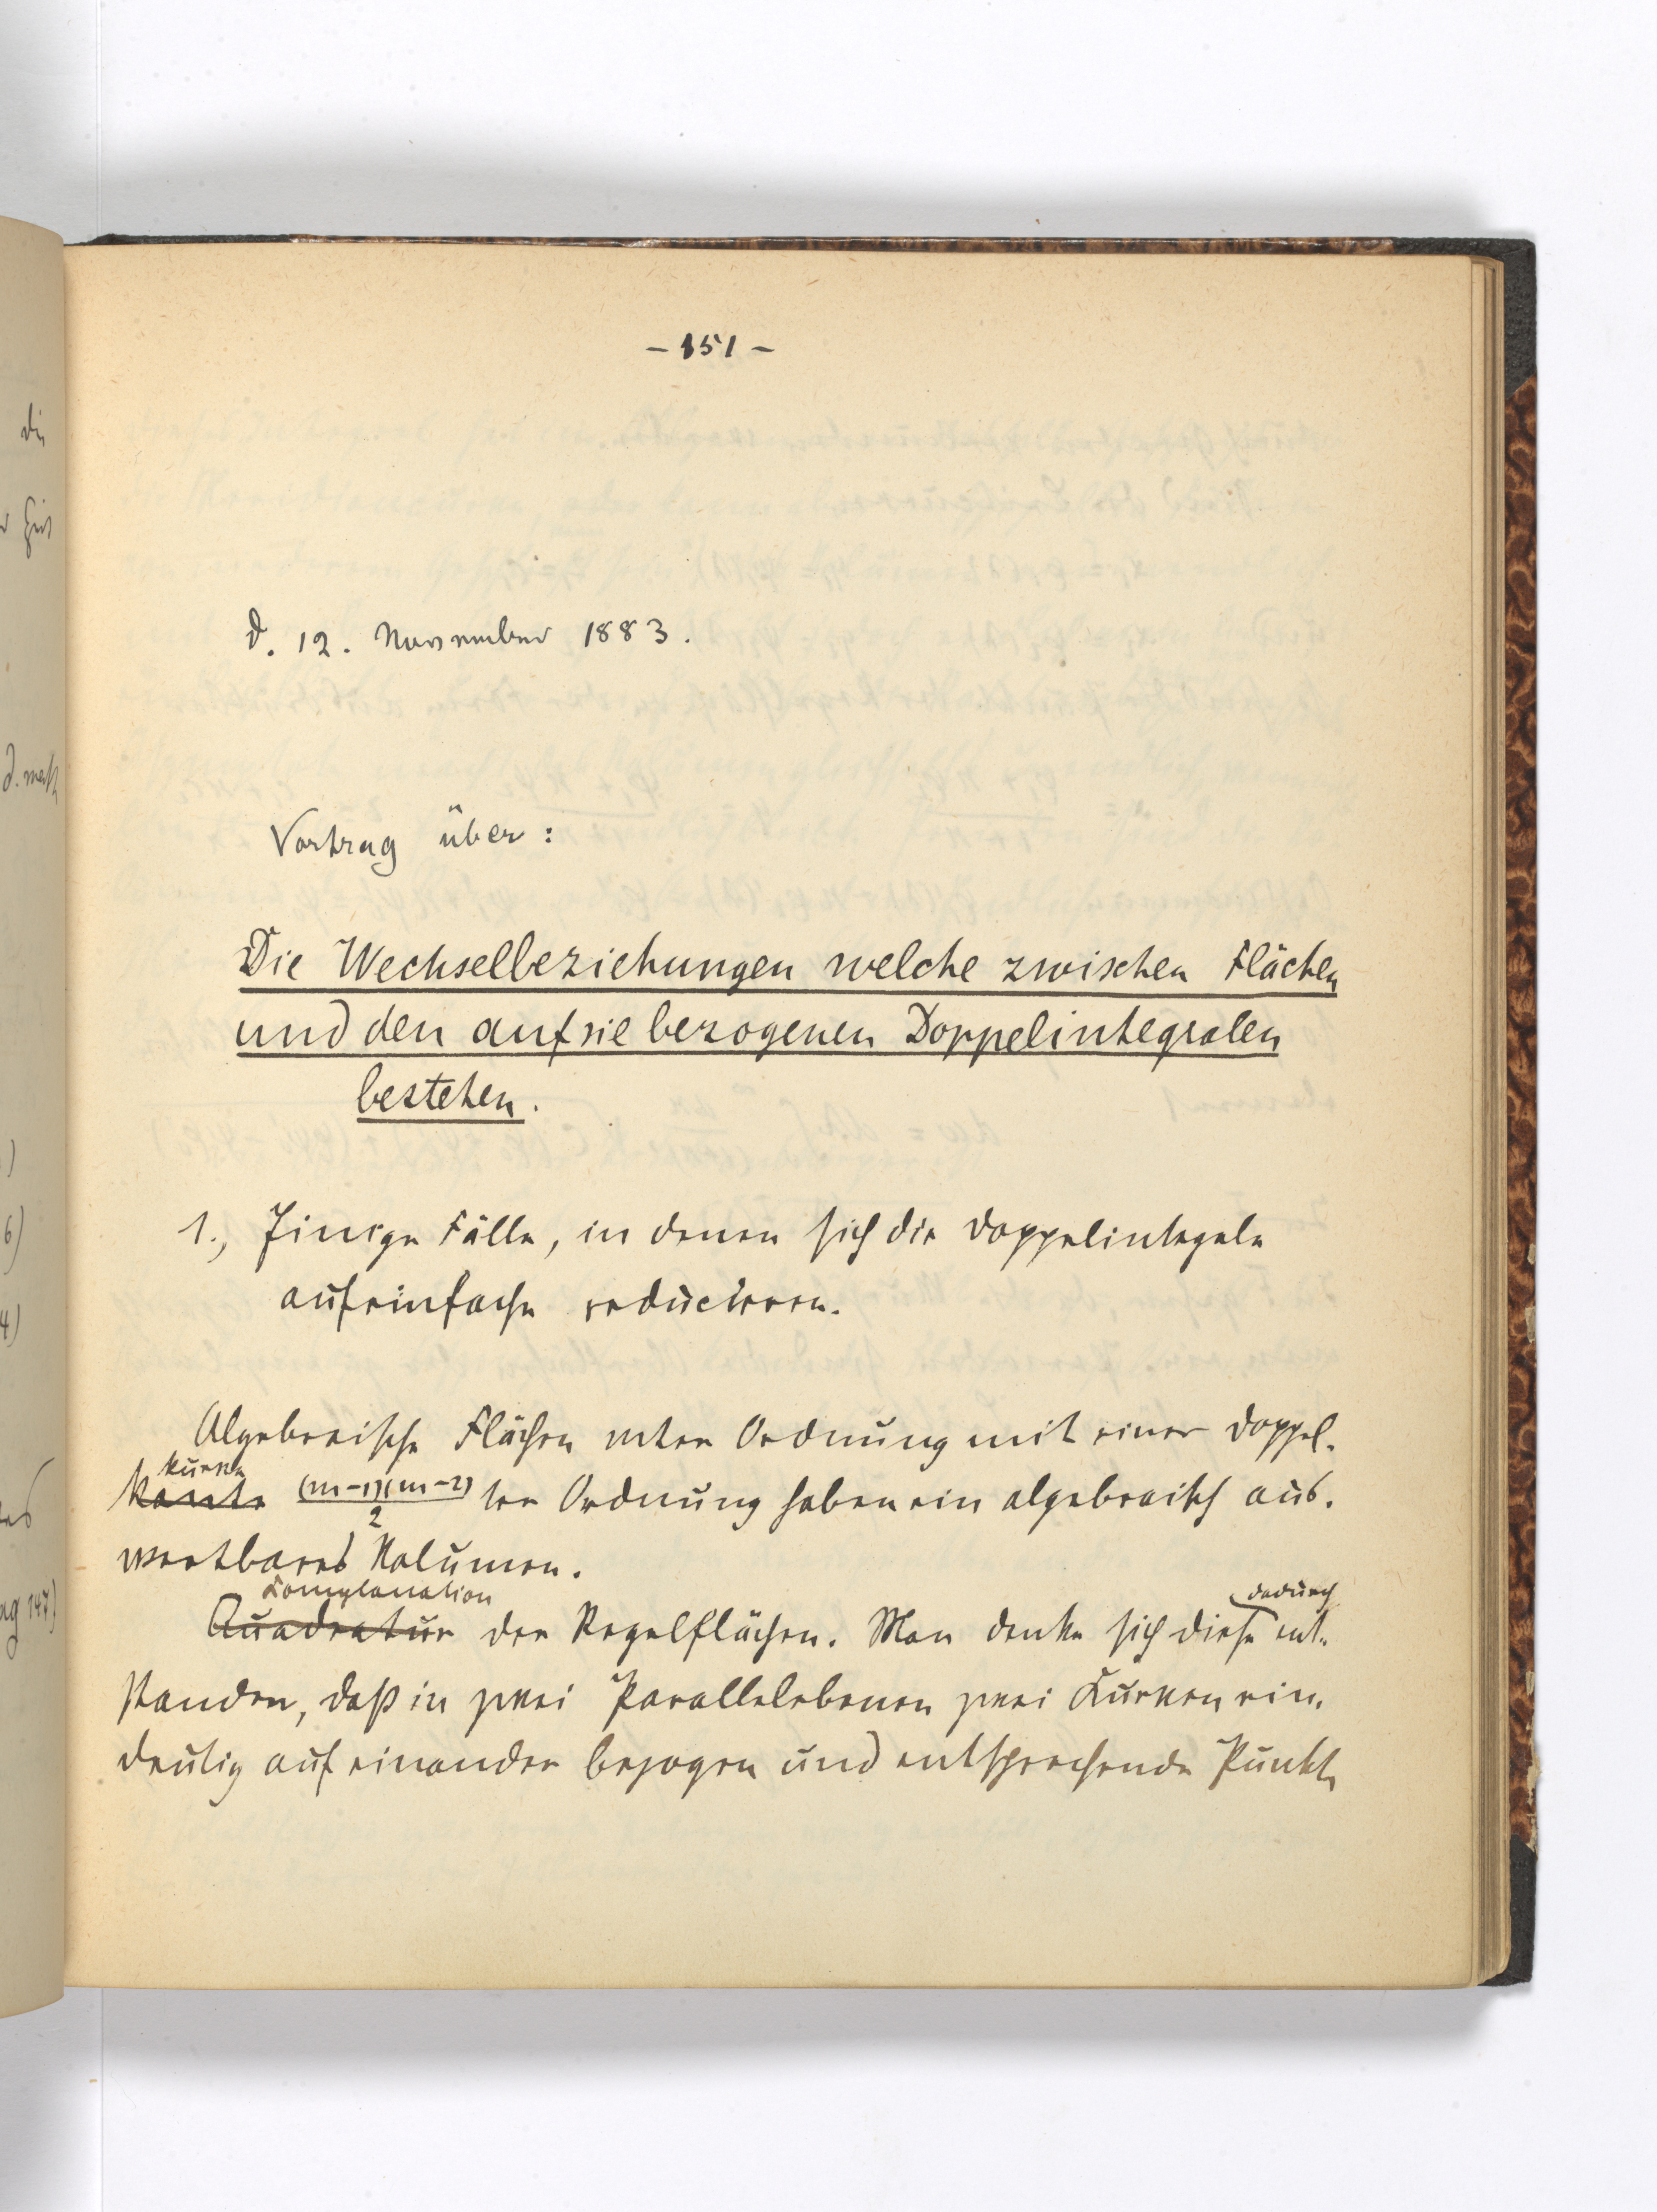 - 151 -
d. 12. November 1883.
Vortrag über:
Die Wechselbeziehungen welche zwischen Flächen
und den auf sie bezogenen Doppelintegralen
bestehen.
1., Einige Fälle, in denen sich die Doppelintegale
auf einfache reducieren.
Algebraische Flächen mter Ordnung mit einer Doppel-
kurve
Kante (m-1)(m-2)/2 ter Ordnung haben ein algebraisch aus-
wertbares Volumen.
Complanation dadurch
Quadratur der Regelflächen. Man denke sich diese ent-
standen, daß in zwei Parallelebenen zwei Kurven ein-
deutig auf einander bezogen und entsprechende Punkte